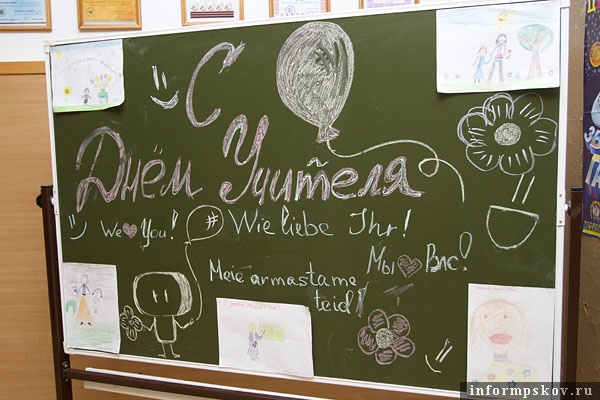 С
Днём Учителя
We You!
# Wie liebe Ihr!
Мы Вас!
Meie armastame
teid!
informpskov.ru